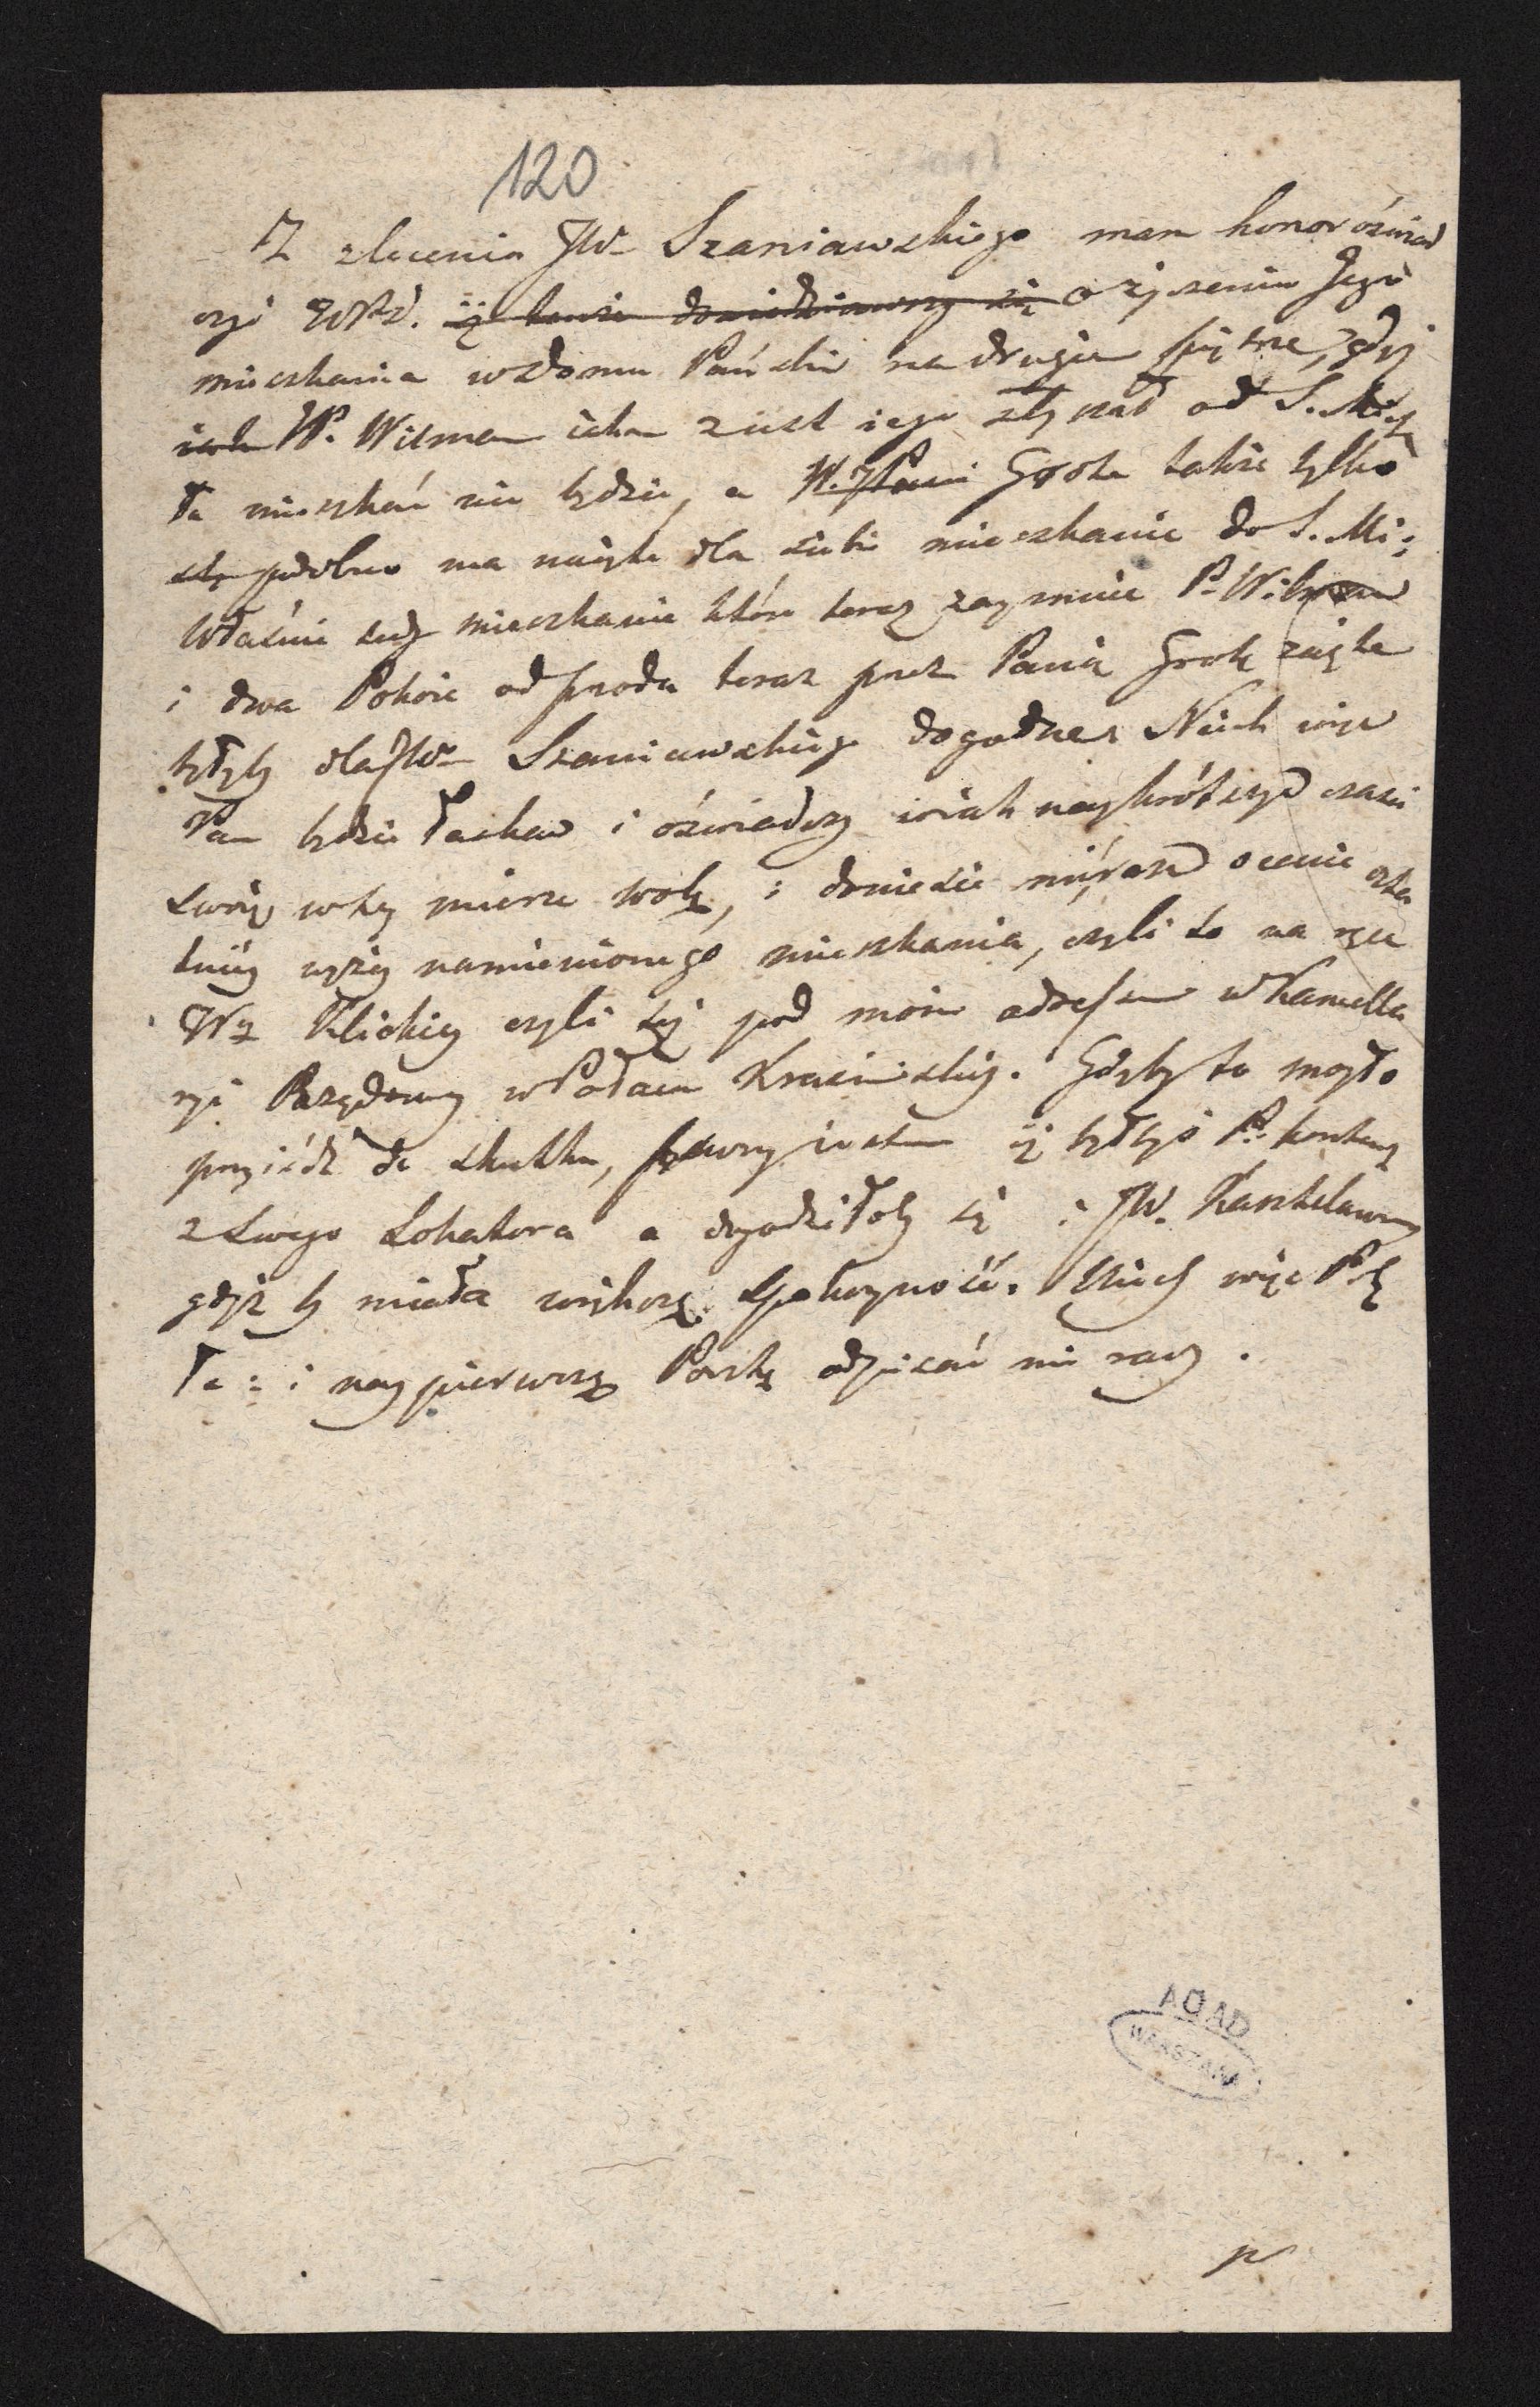 120
Z zlecenia JW Szaniawskiego mam honor oświad
czyć WPd. iż tenże dowiedziawszy się o życzeniu Jego
mieszkania w domu Pańskim na drugim piętrze, gdyż
iak W. Wilman iak zust iego słyszał od S. Micha
ła mieszkać nie będzie, a W. JPani Grote także tylko
podobno ma naięte dla siebie mieszkanie do S. Mi:
Właśnie tedy mieszkanie które teraz zaymuie P. Wilman
i dwa Pokoie od przodu teraz przez Panią Grotę zaięte
byłyby dla JW Szaniawskiego dogodne. Niech więc
Pan będzie łaskaw i oświadczy w iak naykrótszym czasie
swoię w tey mierze wolę, i doniesie mi zaraz o cenie osta
tniey wyżey namienionego mieszkania, czyli to na ręce
W Klickiey czyli też pod moim adressem w Kancella
ryi Rządowey w Pałacu Krasińskich. Gdyby to mogło
przyiść do skutku, pewny iestem iż byłbyś P. kontent
z swego Lokatora a dogodziłoby się i JW. Kasztelanowy
gdyż by miała większą spokoyność. Niech więc P. bę
ła: i naypierwszą Pocztą odpisać mi raczy.
AGAD
WARSZAWA